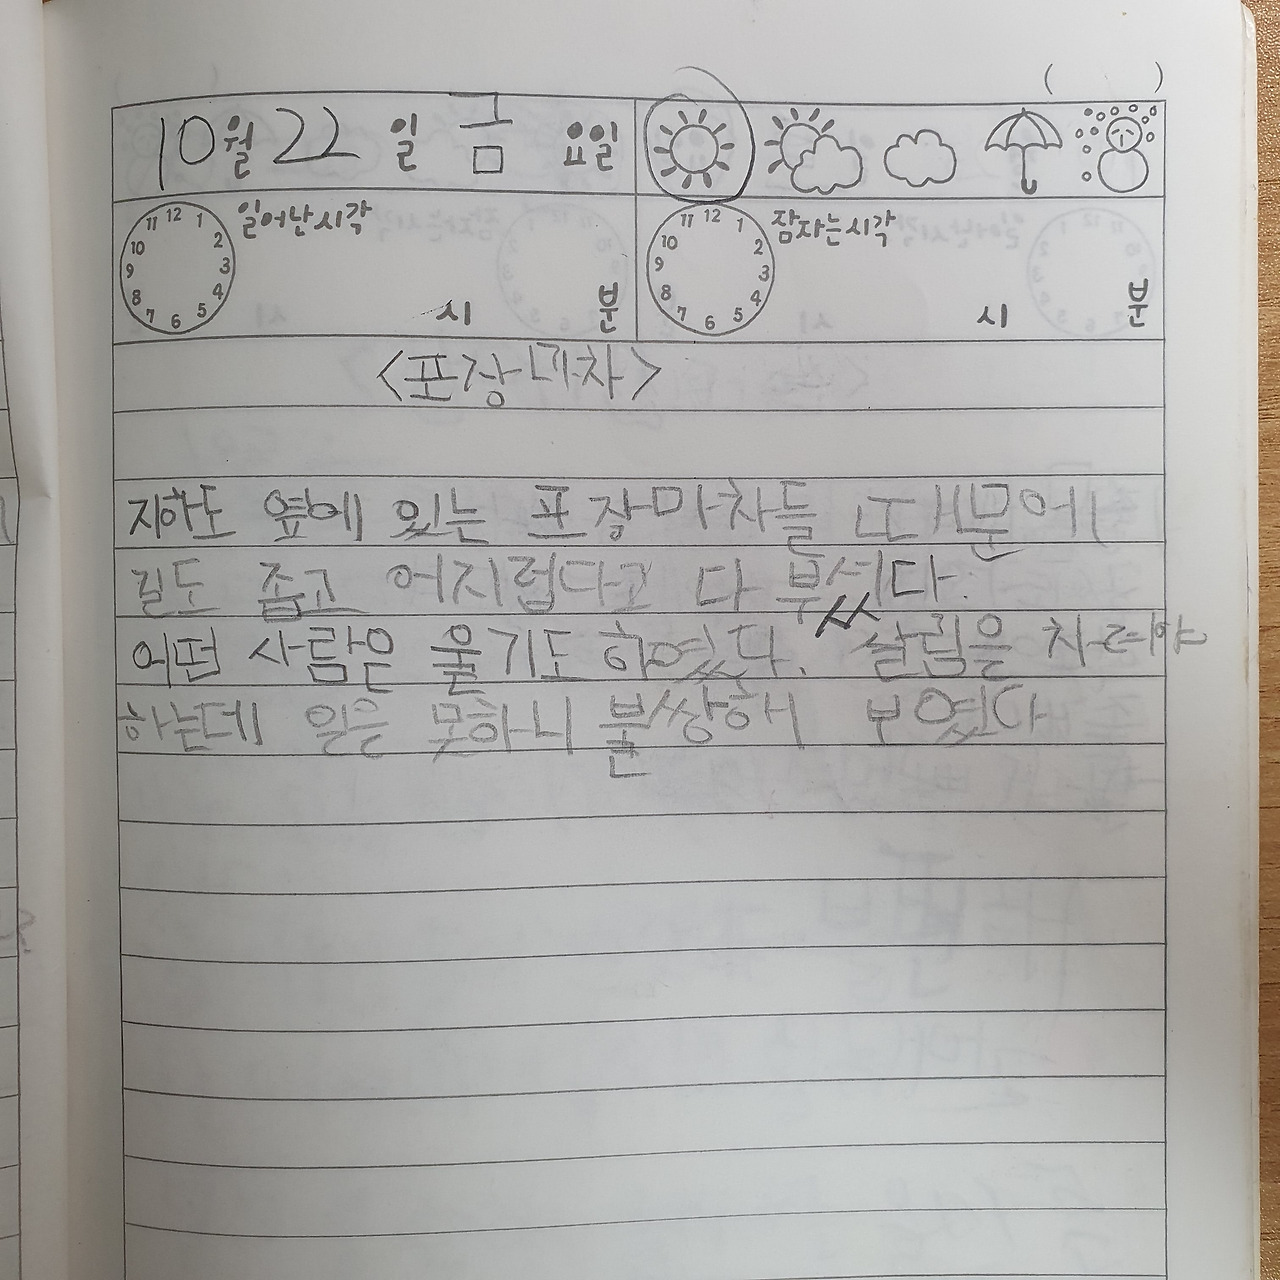 ( )
10월 22일 금 요일
일어난시각 잠자는시각
11 12 1 2 3 4 5 6 7 8 9 10
시 분
11 12 1 2 3 4 5 6 7 8 9 10
시 분
<포장마차>
지하도 옆에 있는 포장마차들 때문에
길도 좁고 어지럽다고 다 부셨다.
어떤 사람은 울기도 하였다. 살림을 차려야
하는데 일을 못하니 불쌍해 보였다